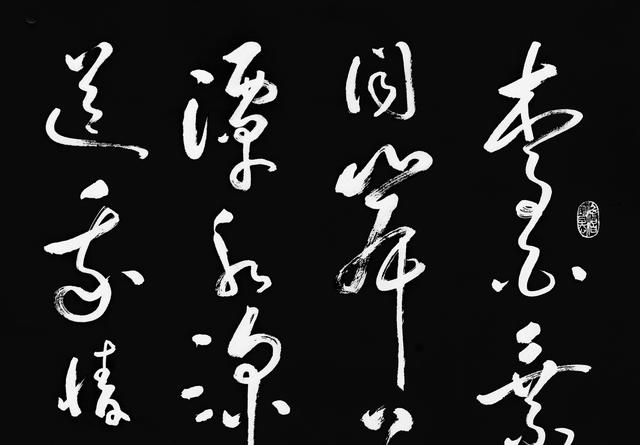 李白乘
闻岸
潭水深
送我情